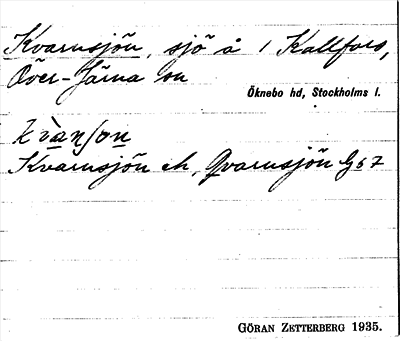 Kvarnsjön, sjö å 1 Kallfors,
Över-Järna sn
Öknebo hd, Stockholms l.
kvanʃon
Kvarnsjön ek, Qvarnsjön G 67
GÖRAN ZETTERBERG 1935.